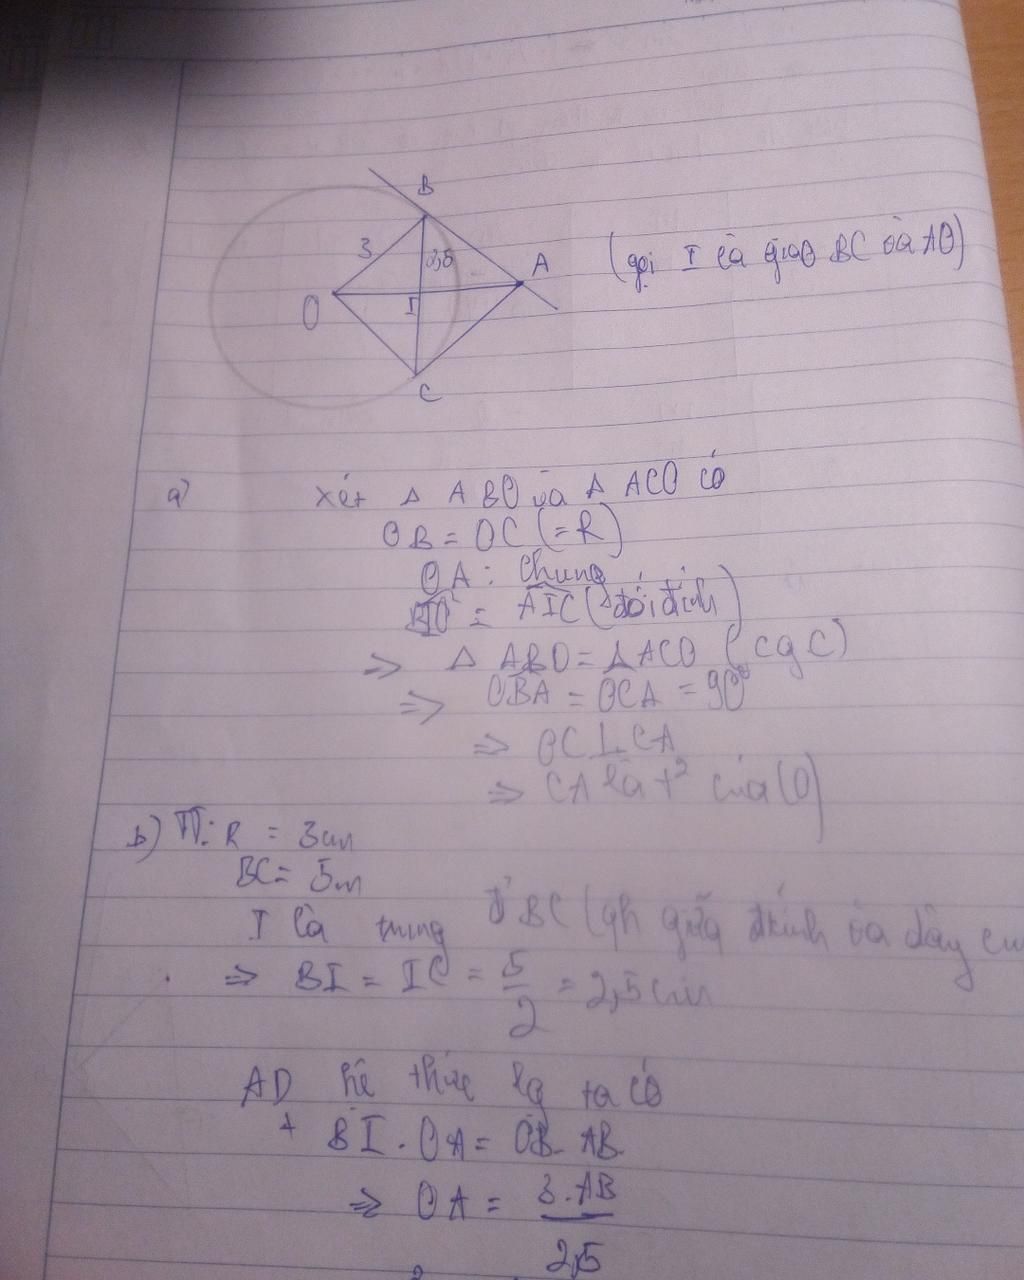 B
3
2,5
A
(gọi I là giao BC và AO)
O
I
C
a) Xét Δ ABO và Δ ACO có
OB = OC (= R)
OA : chung
BIO = AIC ( đối đỉnh)
=> Δ ABO = Δ ACO (cgc)
=> OBA = OCA = 90°
=> OC ⊥ CA
=> CA là t² của (O)
b) TT: R = 3cm
BC = 5m
I là trung đ' BC (qh giữa đkính và dây cu
=> BI = IC = 5/2 = 2,5 cm
AD hê thức lg ta có
+ BI . OA = OB . AB
=> OA = 3.AB/2,5